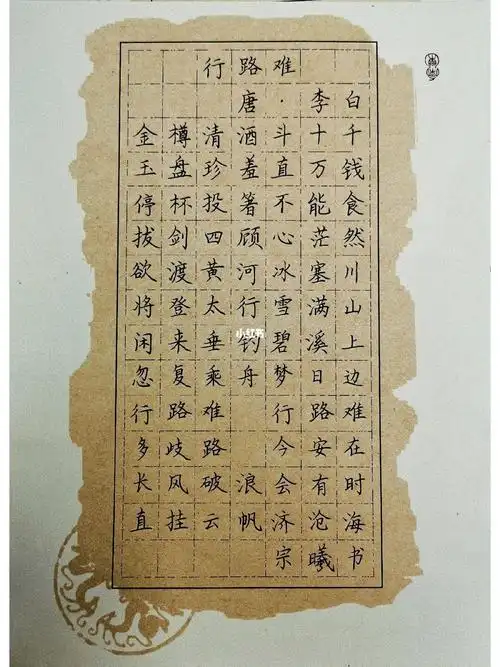 行路难
唐·李白
金樽清酒斗十千
玉盘珍羞直万钱
停杯投箸不能食
拔剑四顾心茫然
欲渡黄河冰塞川
将登太行雪满山
闲来垂钓碧溪上
小红书
忽复乘舟梦日边
行路难 行路难
多歧路 今安在
长风破浪会有时
直挂云帆济沧海
宗曦书